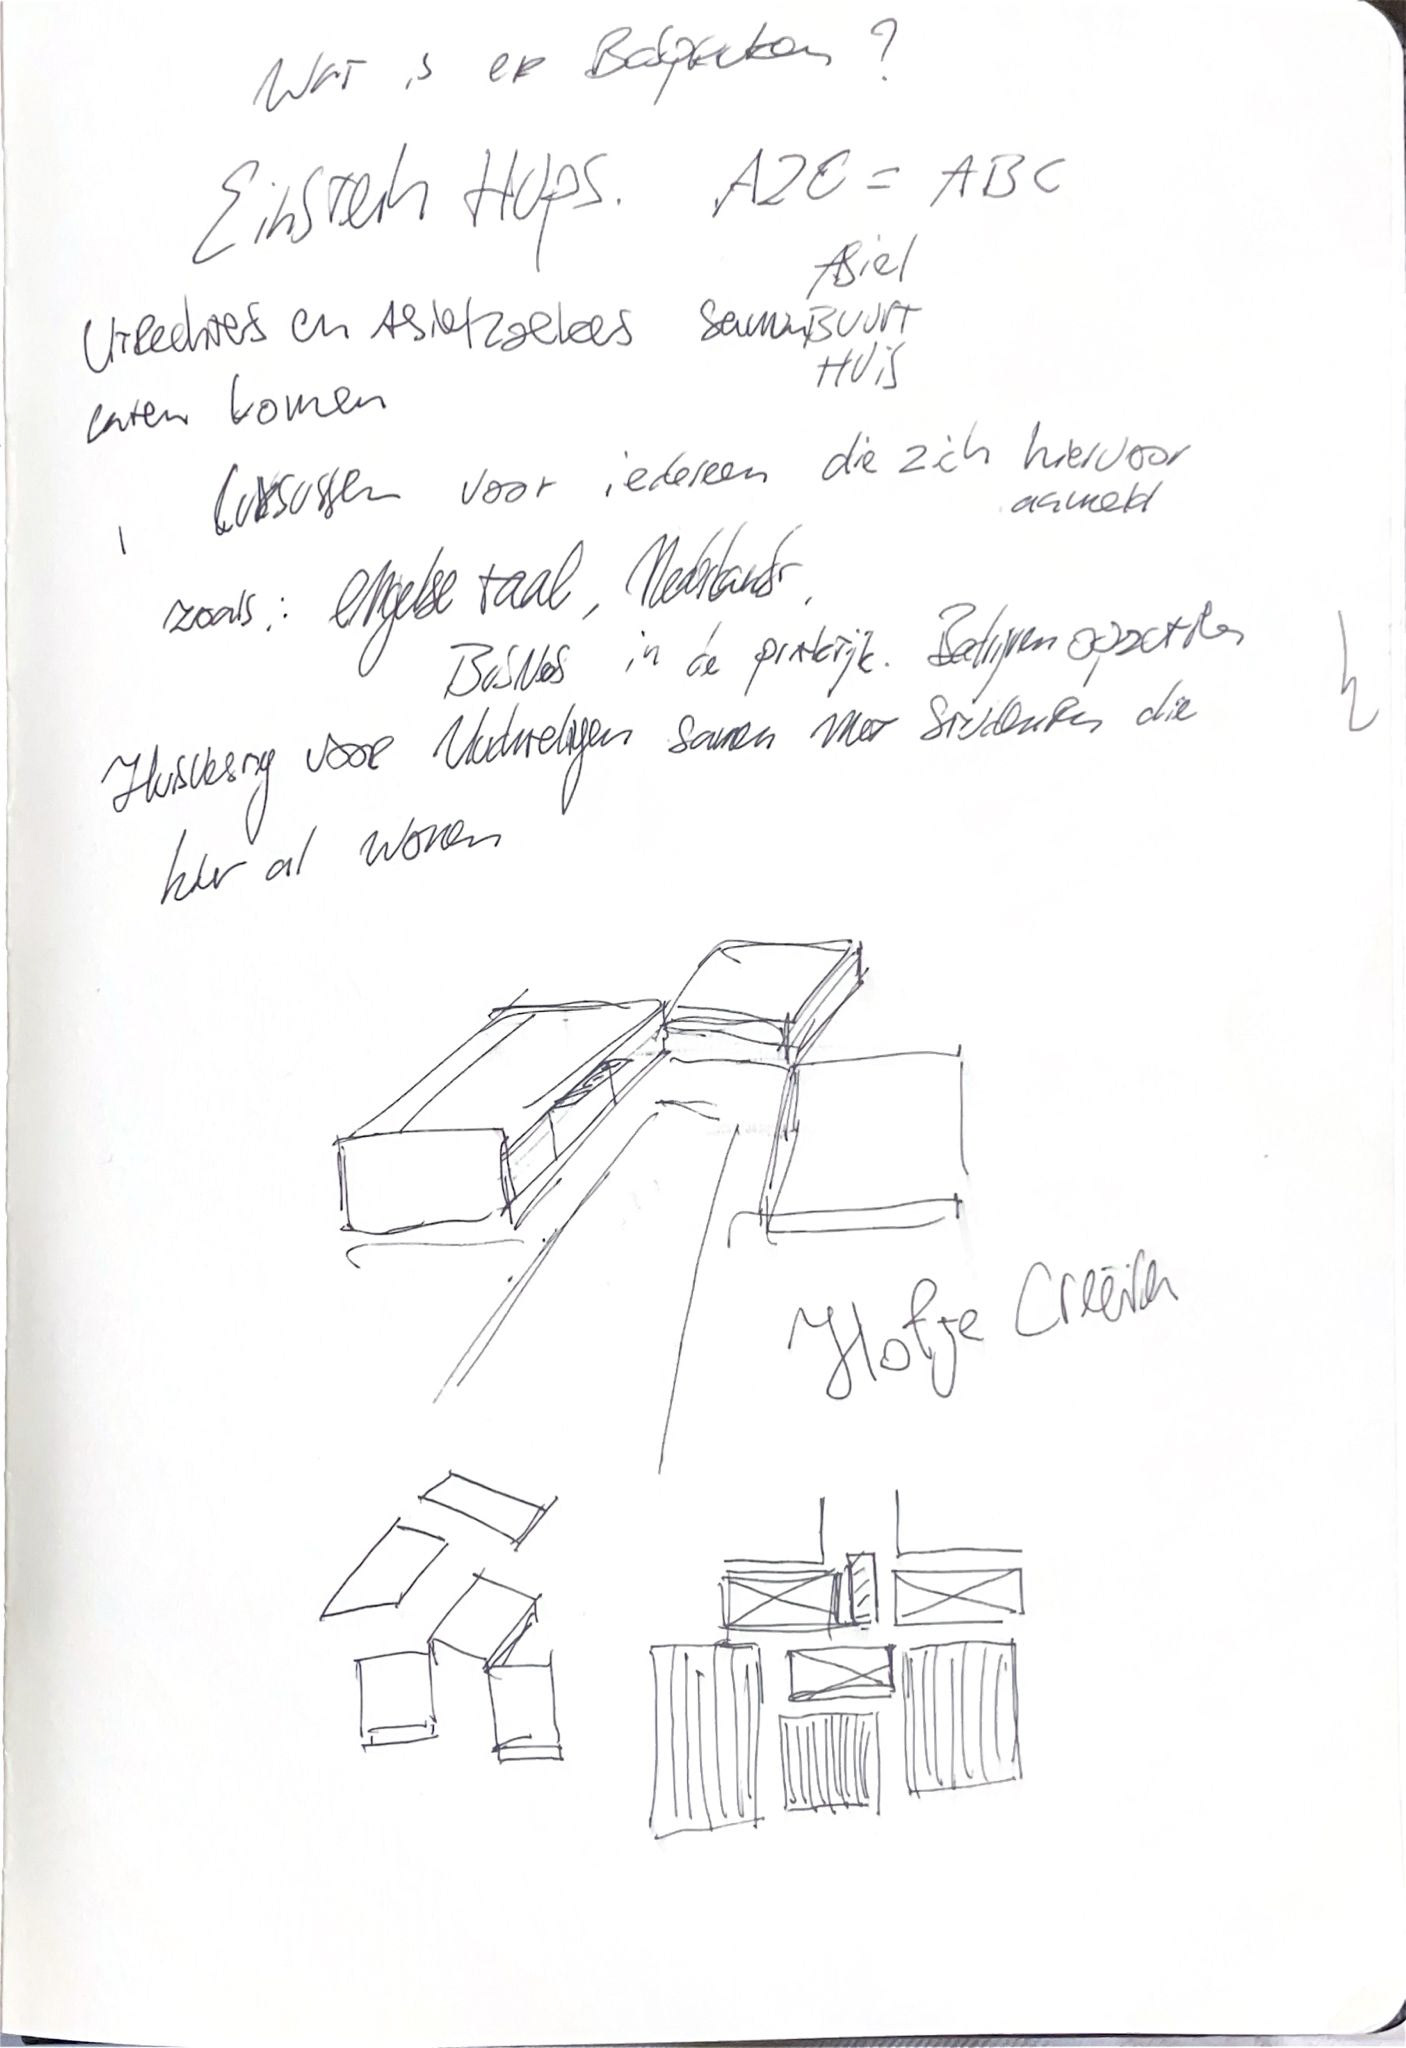 Wat is er Besproken?
Einstein Hups. AZC = ABC
Asiel
Utrechters en Asielzoekers samen BUURT
HUIS
laten komen
Cursussen voor iedereen die zich hiervoor
aanmeld
zoals: engelse taal, Nederlands,
Busines in de praktijk. Bedrijven opzetten
Huisvesting voor Vluchtelingen samen met Studenten die
hier al wonen
Hofje Creëren